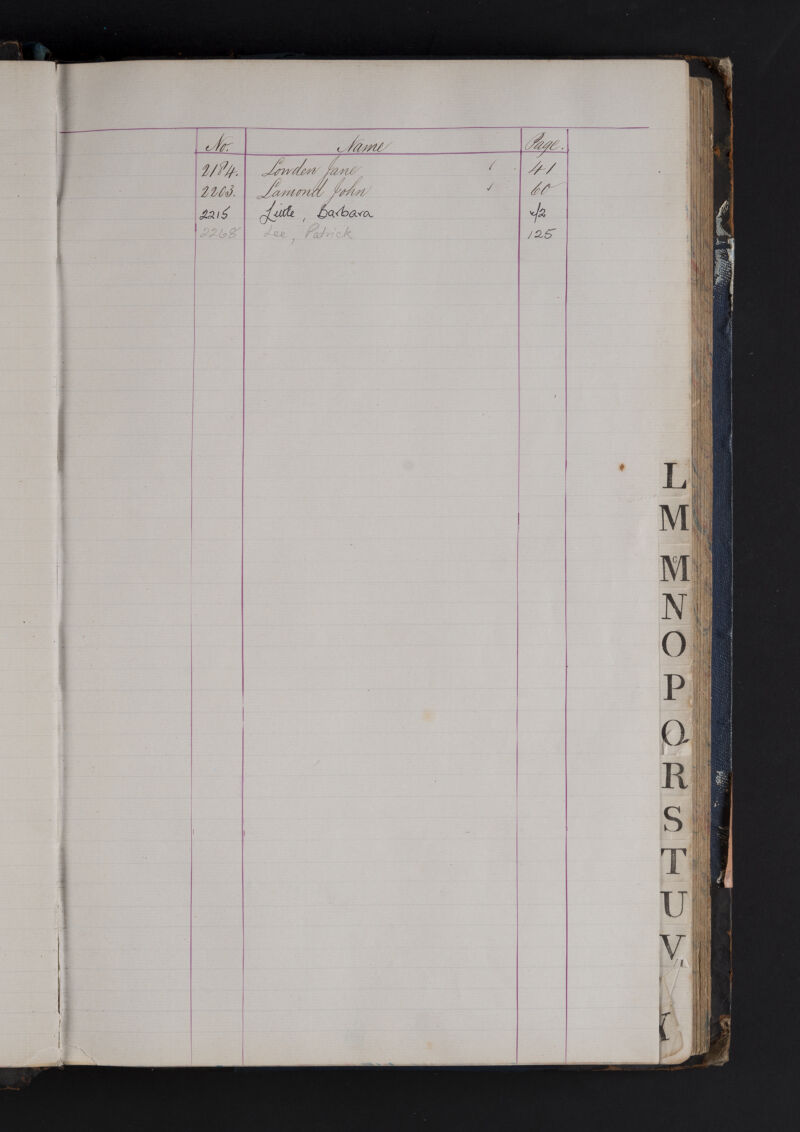 No. Name Page.
2184. Lowden Jane 41
2203. Lamond John 60
2215 Little, Barbara 72
2268 Lee, Patrick 125
L
M
Mc
N
O
P
Q
R
S
T
U
V
Y